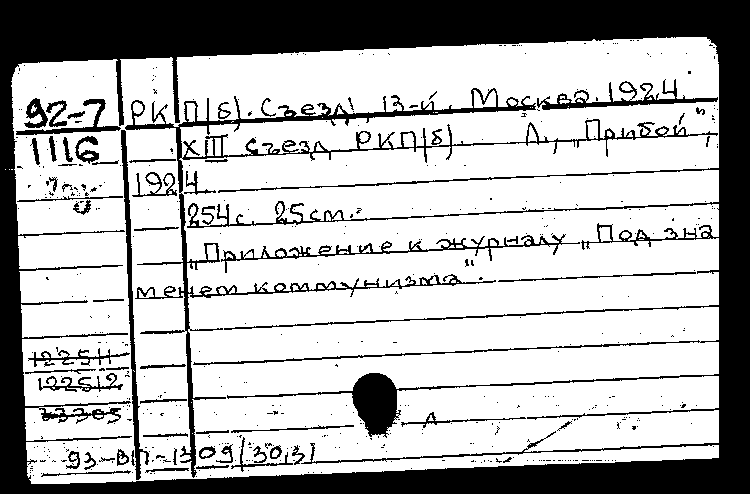 92-7 РКП(б). Съезд, 13-й. Москва. 1924.
1116 XIII съезд РКП(б). Л., „Прибой“,
1924.
254 с. 25 cm.
„Приложение к журналу „Под зна
менем коммунизма“.
122511
122512
33305
А
93-ВП-1309/3031